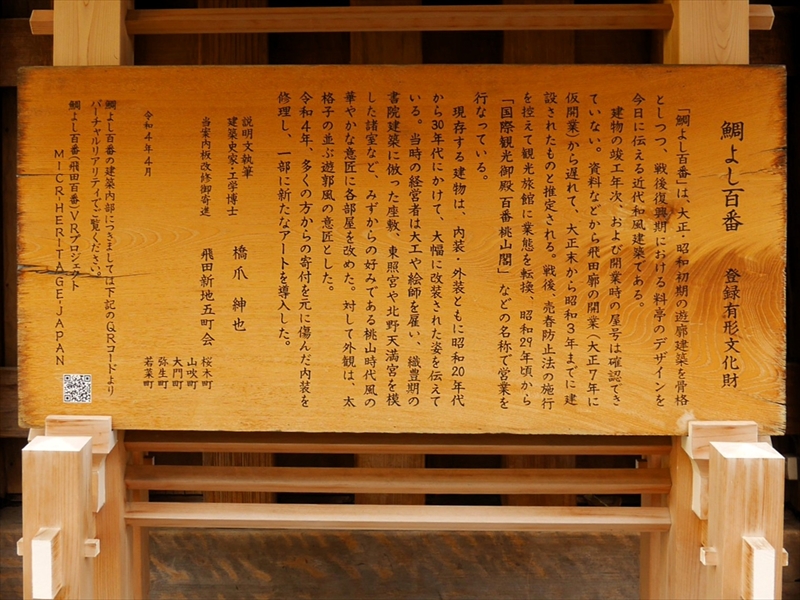 鯛よし百番　登録有形文化財
「鯛よし百番」は、大正・昭和初期の遊廓建築を骨格
としつつ、戦後復興期における料亭のデザインを
今日に伝える近代和風建築である。
建物の竣工年次、および開業時の屋号は確認でき
ていない。資料などから飛田廓の開業（大正７年に
仮開業）から遅れて、大正末から昭和３年までに建
設されたものと推定される。戦後、売春防止法の施行
を控えて観光旅館に業態を転換、昭和29年頃から
「国際観光御殿 百番桃山閣」などの名称で営業を
行なっている。
現存する建物は、内装・外装ともに昭和20年代
から30年代にかけて、大幅に改装された姿を伝えて
いる。当時の経営者は大工や絵師を雇い、織豊期の
書院建築に倣った座敷、東照宮や北野天満宮を模
した諸室など、みずからの好みである桃山時代風の
華やかな意匠に各部屋を改めた。対して外観は、太
格子の並ぶ遊郭風の意匠とした。
令和４年、多くの方からの寄付を元に傷んだ内装を
修理し、一部に新たなアートを導入した。
説明文執筆
建築史家・工学博士　橋爪　紳也
当案内板改修御寄進　飛田新地五町会
桜木町
山吹町
大門町
弥生町
若菜町
令和４年４月
鯛よし百番の建築内部につきましては下記のＱＲコードより
バーチャルリアリティでご覧ください。
鯛よし百番（飛田百番）ＶＲプロジェクト
MICR-HERITAGE-JAPAN